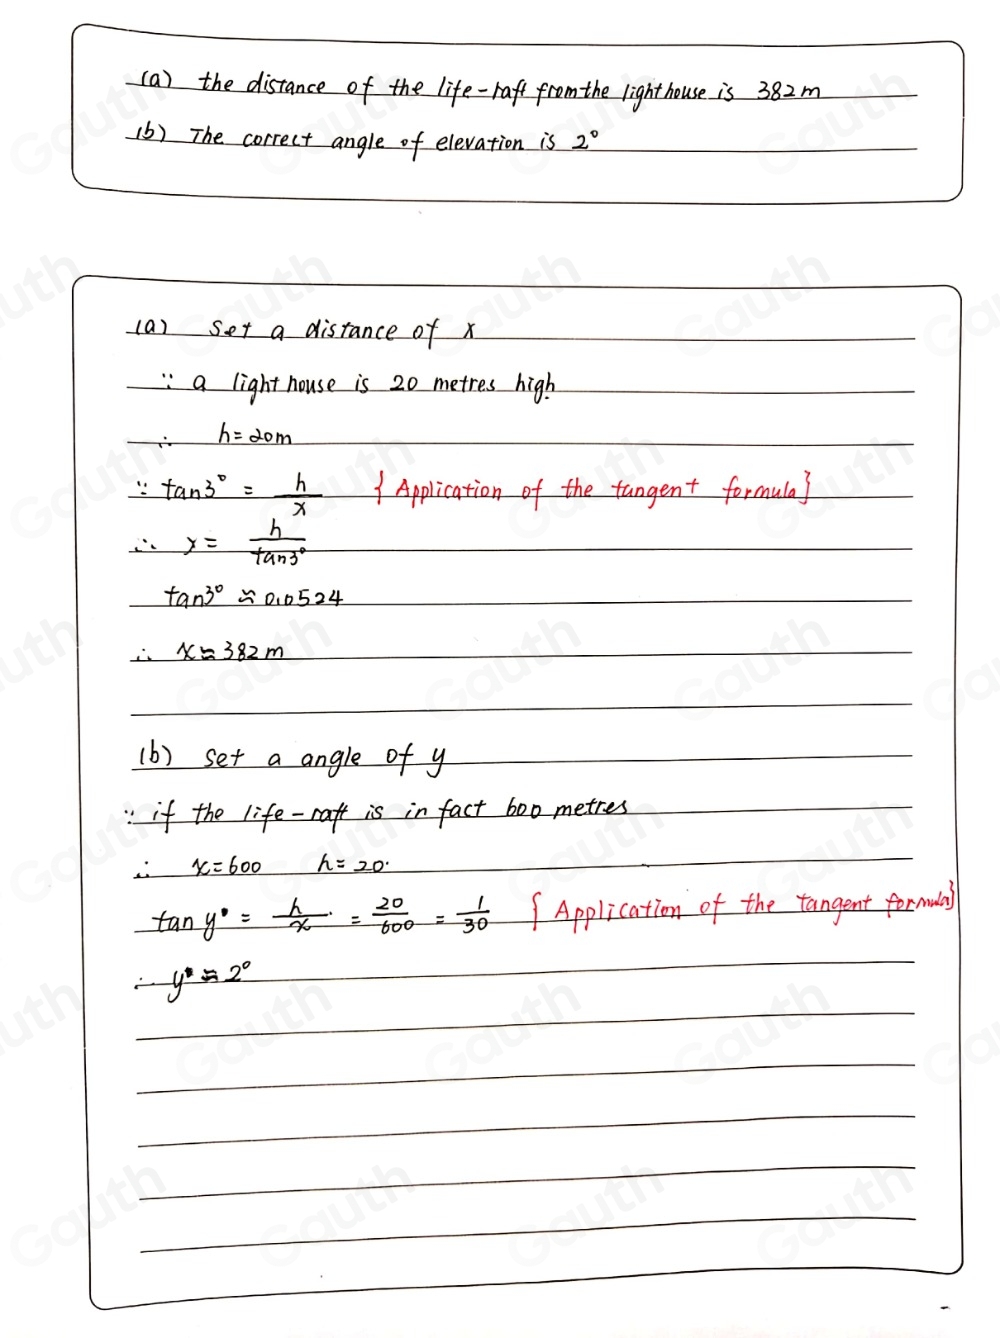 (a) the distance of the life-raft from the lighthouse is 382m
(b) The correct angle of elevation is 2°
(a) Set a distance of x
∵ a light house is 20 metres high
∴ h=20m
∵ tan3° = h/x {Application of the tangent formula}
∴ x = h/tan3°
tan3° ≈ 0.0524
∴ x≈382m
(b) Set a angle of y
∵ if the life-raft is in fact 600 metres
∴ x=600 h=20.
tan y° = h/x = 20/600 = 1/30 {Application of the tangent formula}
∴ y° ≈ 2°